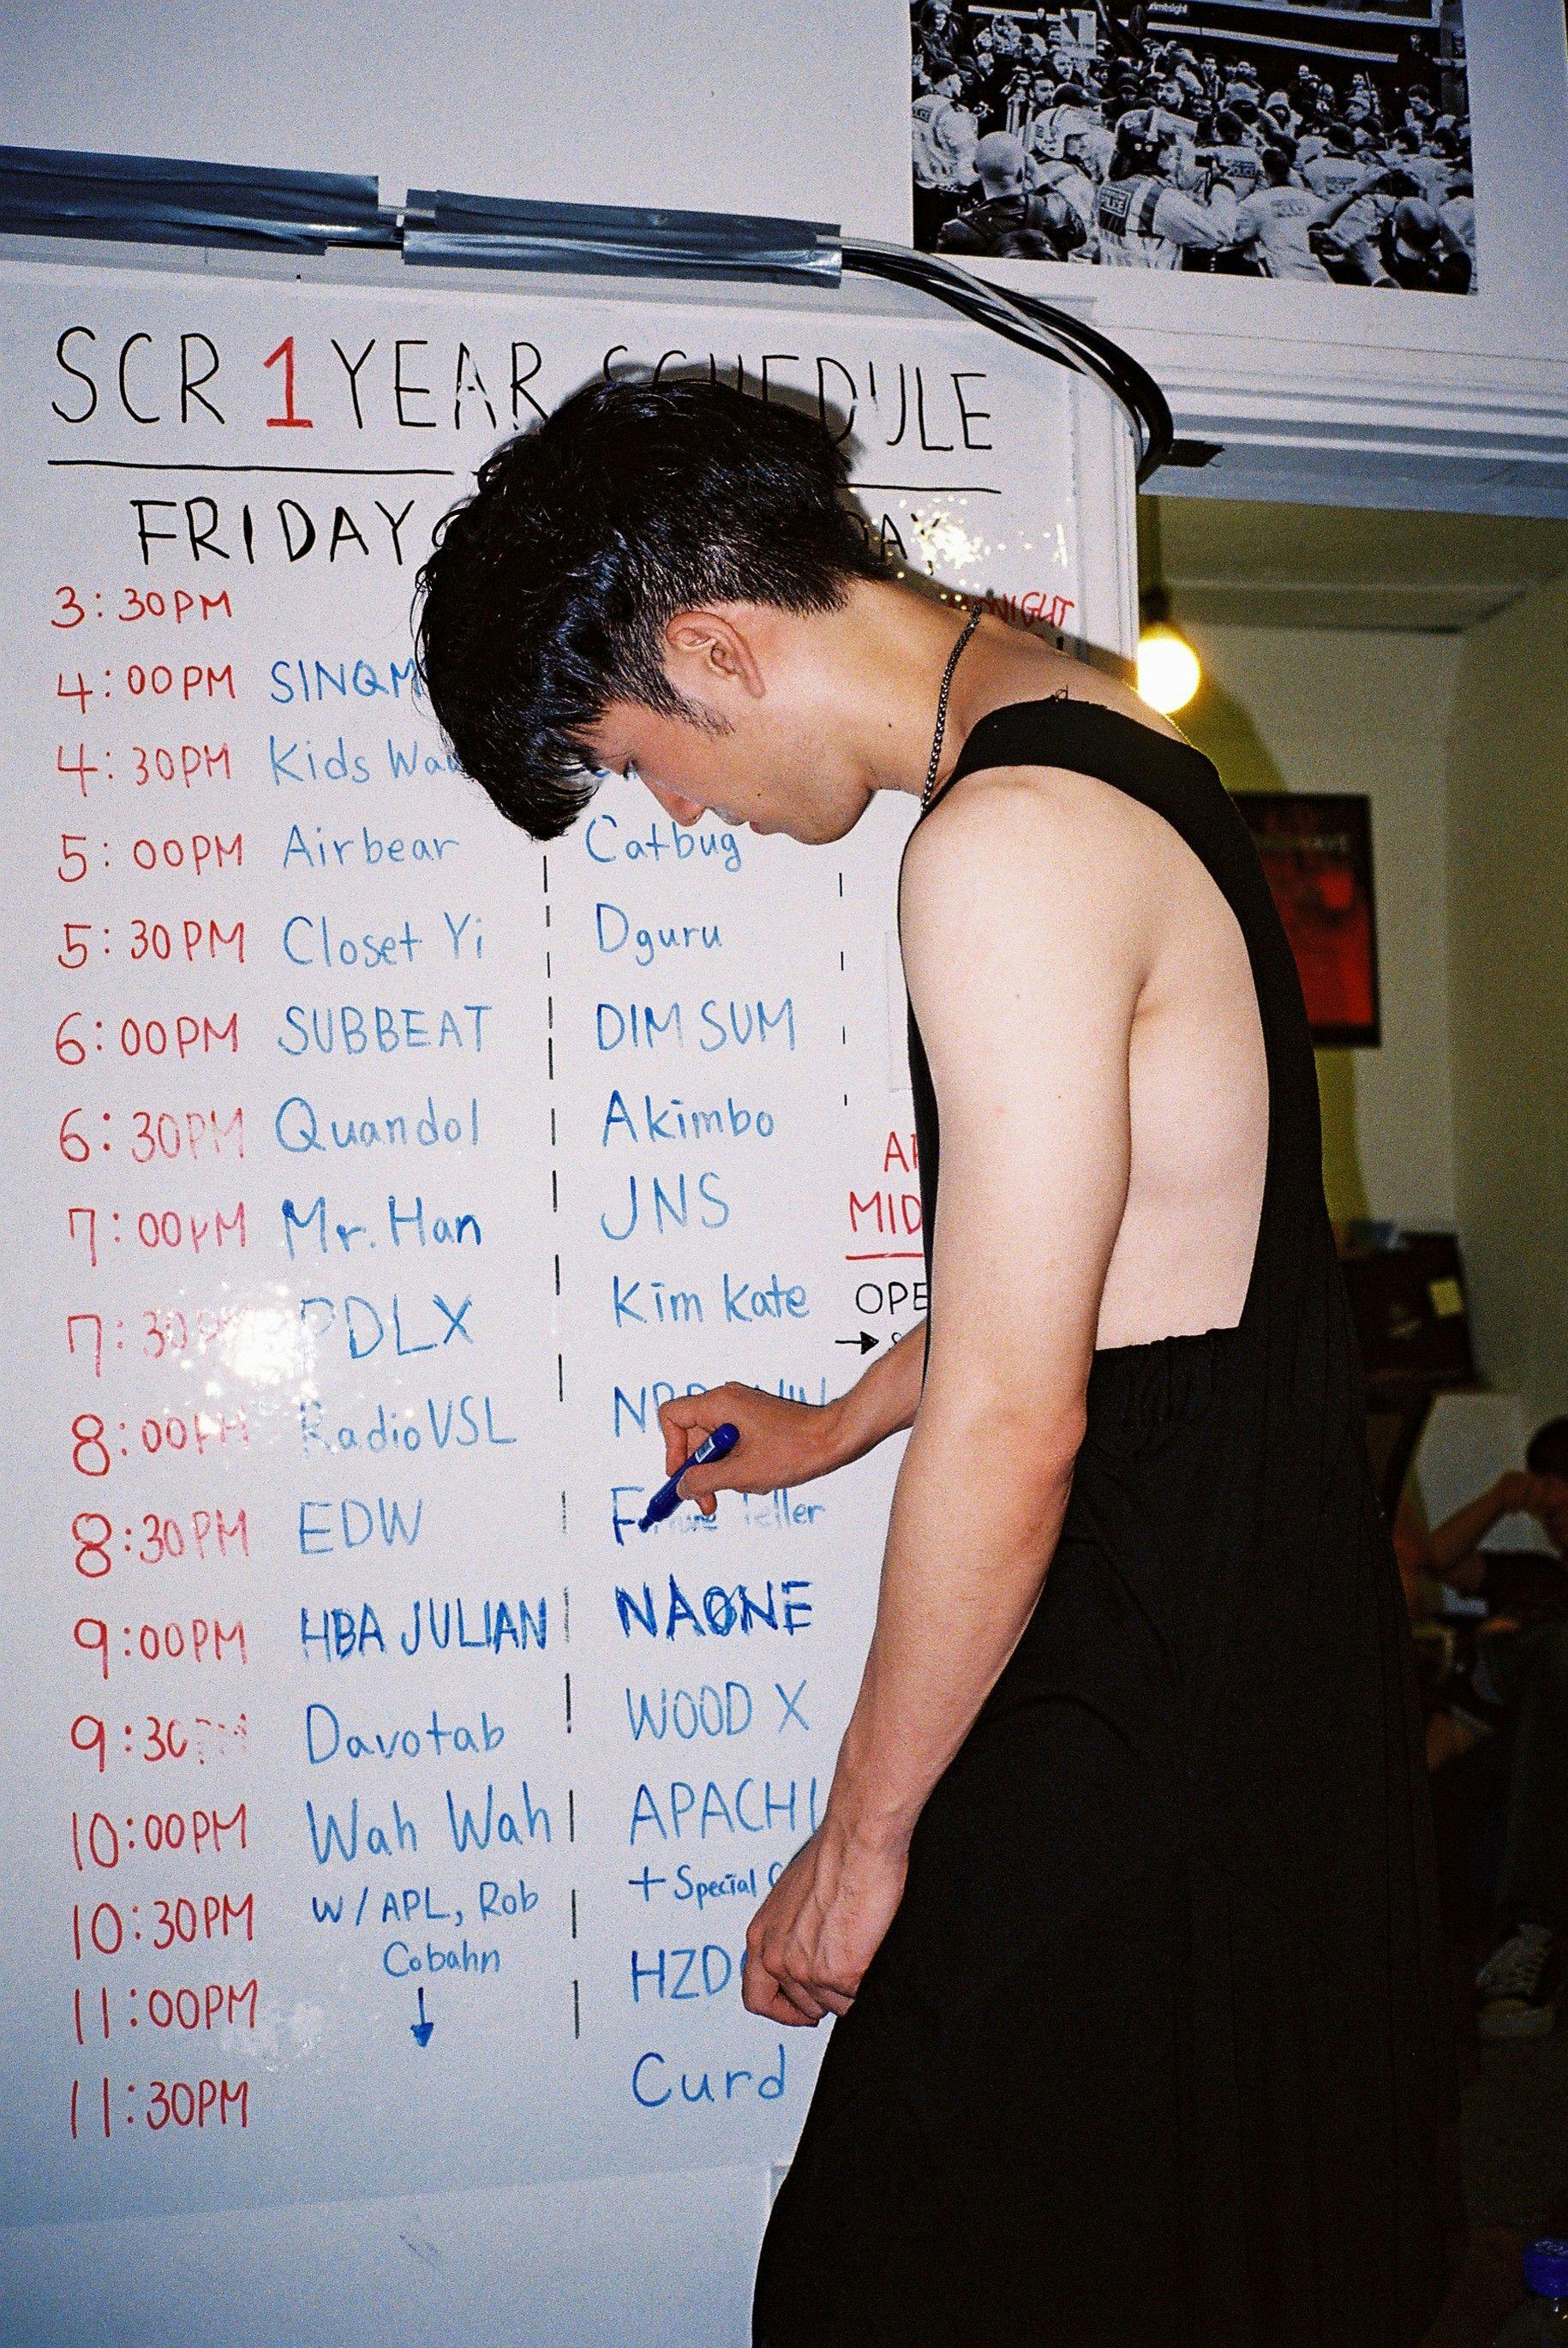 SCR 1 YEAR SCHEDULE
FRIDAY
3:30PM
4:00PM
4:30PM Kids
5:00PM Airbear Catbug
5:30PM Closet Yi Dguru
6:00PM SUBBEAT DIM SUM
6:30PM Quandol Akimbo
7:00PM Mr. Han JNS
7:30PM PDLX Kim Kate
8:00PM RadioVSL
8:30PM EDW Teller
9:00PM HBA JULIAN NAONE
9:30PM Davotab WOOD X
10:00PM Wah Wah APACHI
10:30PM W/APL, Rob + Special
Cobahn
11:00PM
11:30PM Curd
POLICE
POLICE